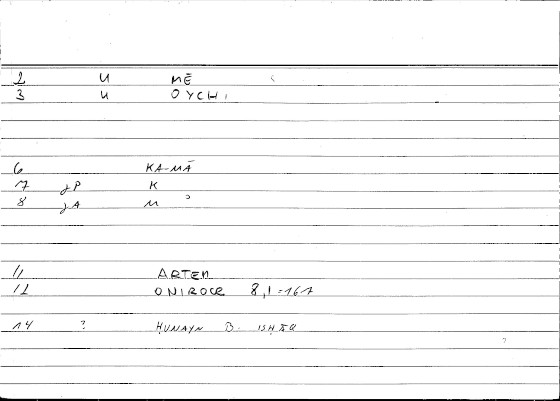 2 U MĒ
3 U OYCHI
6 KA-MĀ
7 JP K
8 JA M
11 ARTEM
12 ONIROCR 8,1=167
14 ? ḤUNAYN B. ISḤĀQ